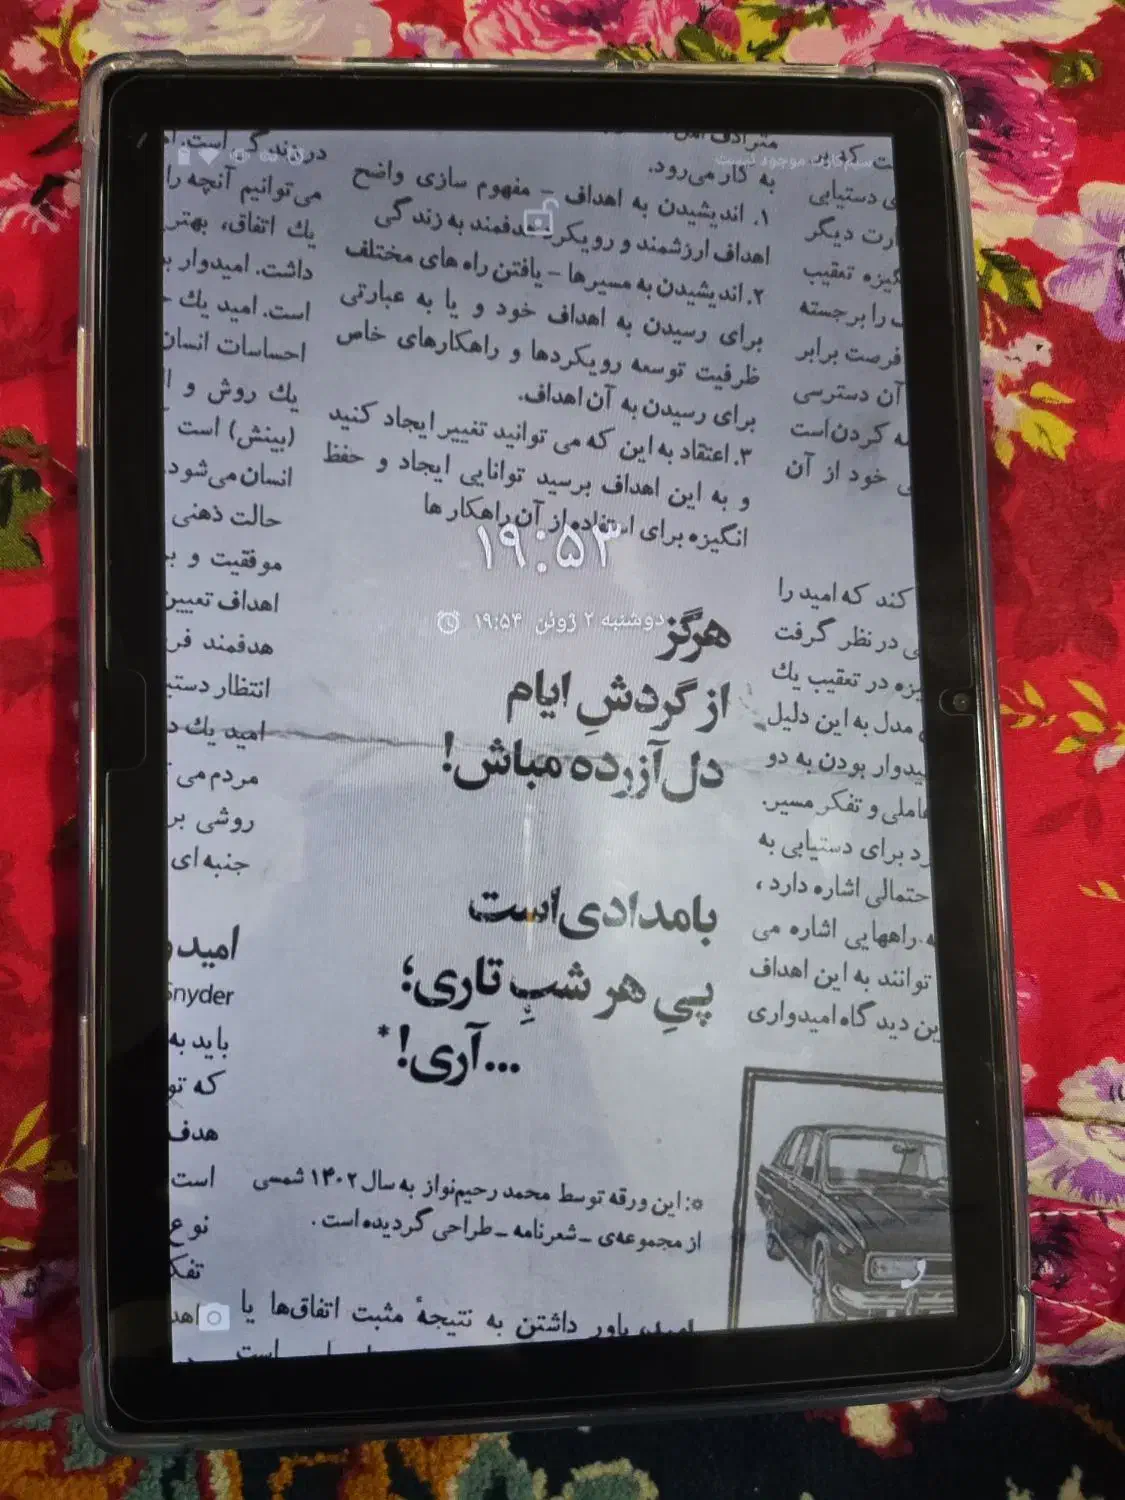 سیم‌کارت موجود نیست
مترادف
به کار می‌رود.
۱. اندیشیدن به اهداف – مفهوم سازی واضح
اهداف ارزشمند و رویکرد هدفمند به زندگی
۲. اندیشیدن به مسیرها – یافتن راه های مختلف
برای رسیدن به اهداف خود و یا به عبارتی
ظرفیت توسعه رویکردها و راهکارهای خاص
برای رسیدن به آن اهداف.
۳. اعتقاد به این که می توانید تغییر ایجاد کنید
و به این اهداف برسید توانایی ایجاد و حفظ
انگیزه برای استفاده از آن راهکار ها
۱۹:۵۳
دوشنبه ۲ ژوئن ۱۹:۵۴
هرگز
از گردشِ ایام
دل‌آزرده مباش!
بامدادی‌است
پیِ هر شبِ تاری؛
...آری!*
*: این ورقه توسط محمد رحیم‌نواز به سال ۱۴۰۲ شمسی
از مجموعه‌ی ـ شعرنامه ـ طراحی گردیده است.
امید، باور داشتن به نتیجهٔ مثبت اتفاق‌ها یا
است
ی دستیابی
ارت دیگر
گیزه تعقیب
را برجسته
فرصت برابر
آن دسترسی
ه کردن‌است
ی خود از آن
کند که امید را
ی در نظر گرفت
یزه در تعقیب یك
مدل به این دلیل
یدوار بودن به دو
عاملی و تفکر مسیر.
رد برای دستیابی به
حتمالی اشاره دارد،
ه راههایی اشاره می
توانند به این اهداف
ین دیدگاه امیدواری
در زندگی است.
می‌توانیم آنچه را
یك اتفاق، بهتر
داشت. امیدوار
است. امید یك
احساسات انسان
یك روش و
(بینش) است
انسان می‌شود.
حالت ذهنی
موفقیت و
اهداف تعیین
هدفمند
انتظار
امید یك
مردم می
روشی بر
جنبه ای
امید و
Snyder
باید به
که تو
هدف
است
نوع
تفک
اهد